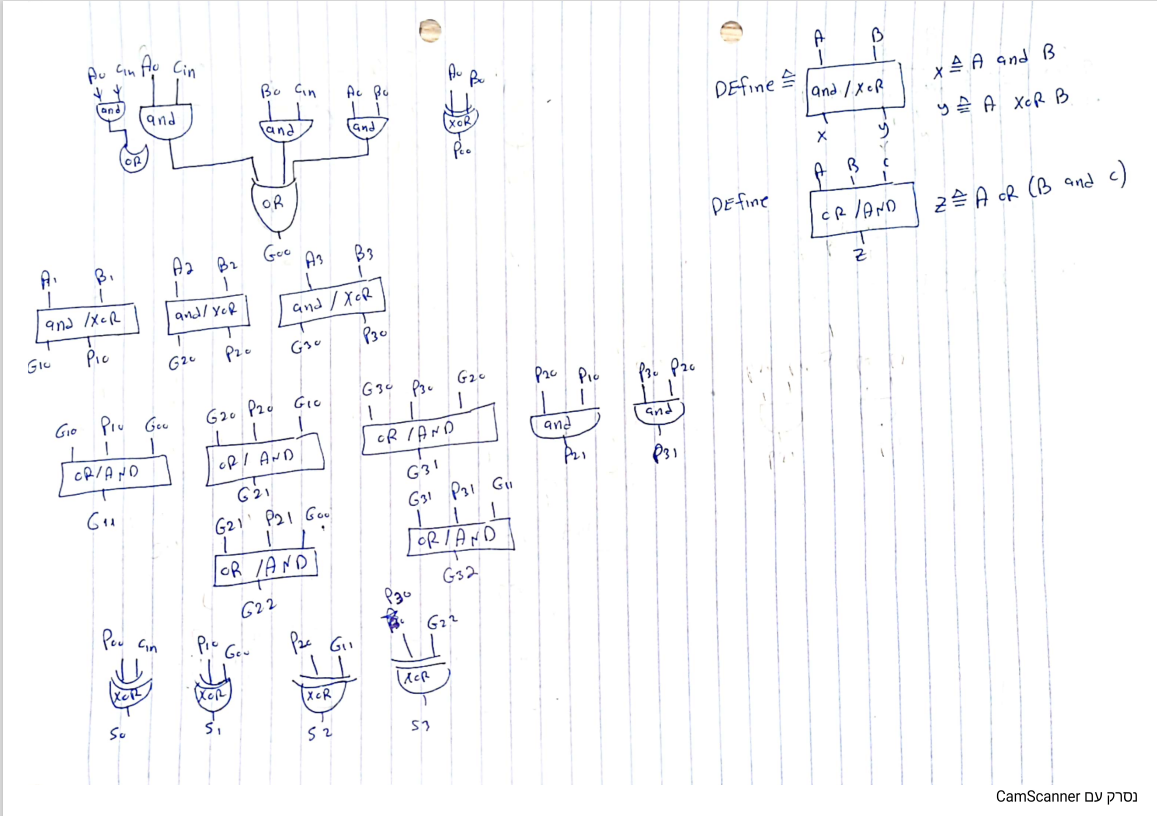 A0 Cin A0 Cin
and and
OR
B0 Cin A0 B0
and and
OR
G00
A0 B0
XOR
P00
DEfine ≜
A B
and / XOR
x y
x ≜ A and B
y ≜ A XOR B
DEfine
A B C
OR / AND
Z
Z ≜ A OR (B and C)
A1 B1
and / XOR
G10 P10
A2 B2
and / XOR
G20 P20
A3 B3
and / XOR
G30 P30
G10 P10 G00
OR / AND
G11
G20 P20 G10
OR / AND
G21
G30 P30 G20
OR / AND
G31
P20 P10
and
P21
P30 P20
and
P31
G21 P21 G00
OR / AND
G22
G31 P31 G11
OR / AND
G32
P00 Cin
XOR
S0
P10 G00
XOR
S1
P20 G11
XOR
S2
P30
G22
XOR
S3
נסרק עם CamScanner